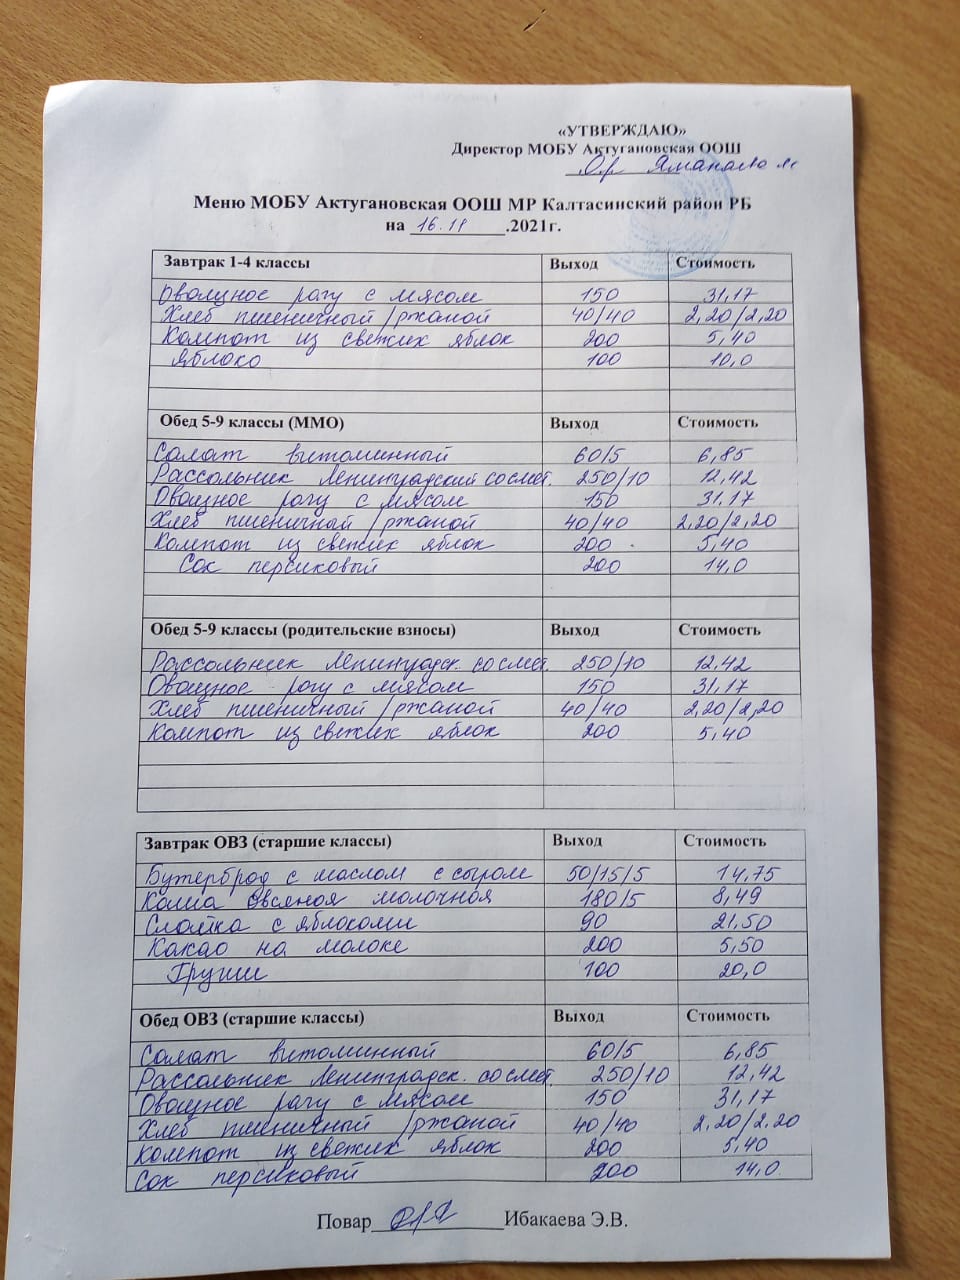 «УТВЕРЖДАЮ»
Директор МОБУ Актугановская ООШ
Яманаева
Меню МОБУ Актугановская ООШ МР Калтасинский район РБ
на 16.11.2021г.
Завтрак 1-4 классы Выход Стоимость
Овощное рагу с мясом 150 31,17
Хлеб пшеничный/ржаной 40/40 2,20/2,20
Компот из свежих яблок 200 5,40
Яблоко 100 10,0
Обед 5-9 классы (ММО) Выход Стоимость
Салат витоминный 60/5 6,85
Рассольник Ленинградский со смет. 250/10 12,42
Овощное рагу с мясом 150 31.17
Хлеб пшеничный/ржаной 40/40 2,20/2,20
Компот из свежих яблок 200 5,40
Сок персиковый 200 14,0
Обед 5-9 классы (родительские взносы) Выход Стоимость
Рассольник Ленинградск. со смет. 250/10 12,42
Овощное рагу с мясом 150 31,17
Хлеб пшеничный/ржаной 40/40 2,20/2,20
Компот из свежих яблок 200 5,40
Завтрак ОВЗ (старшие классы) Выход Стоимость
Бутерброд с маслом с сыром 50/15/5 14,75
Каша овсяная молочная 180/5 8,49
Слойка с яблоками 90 21,50
Какао на молоке 200 5,50
Груши 100 20,0
Обед ОВЗ (старшие классы) Выход Стоимость
Салат витоминный 60/5 6,85
Рассольник Ленинградск. со смет. 250/10 12,42
Овощное рагу с мясом 150 31,17
Хлеб пшеничный/ржаной 40/40 2,20/2,20
Компот из свежих яблок 200 5,40
Сок персиковый 200 14,0
Повар Ибакаева Э.В.